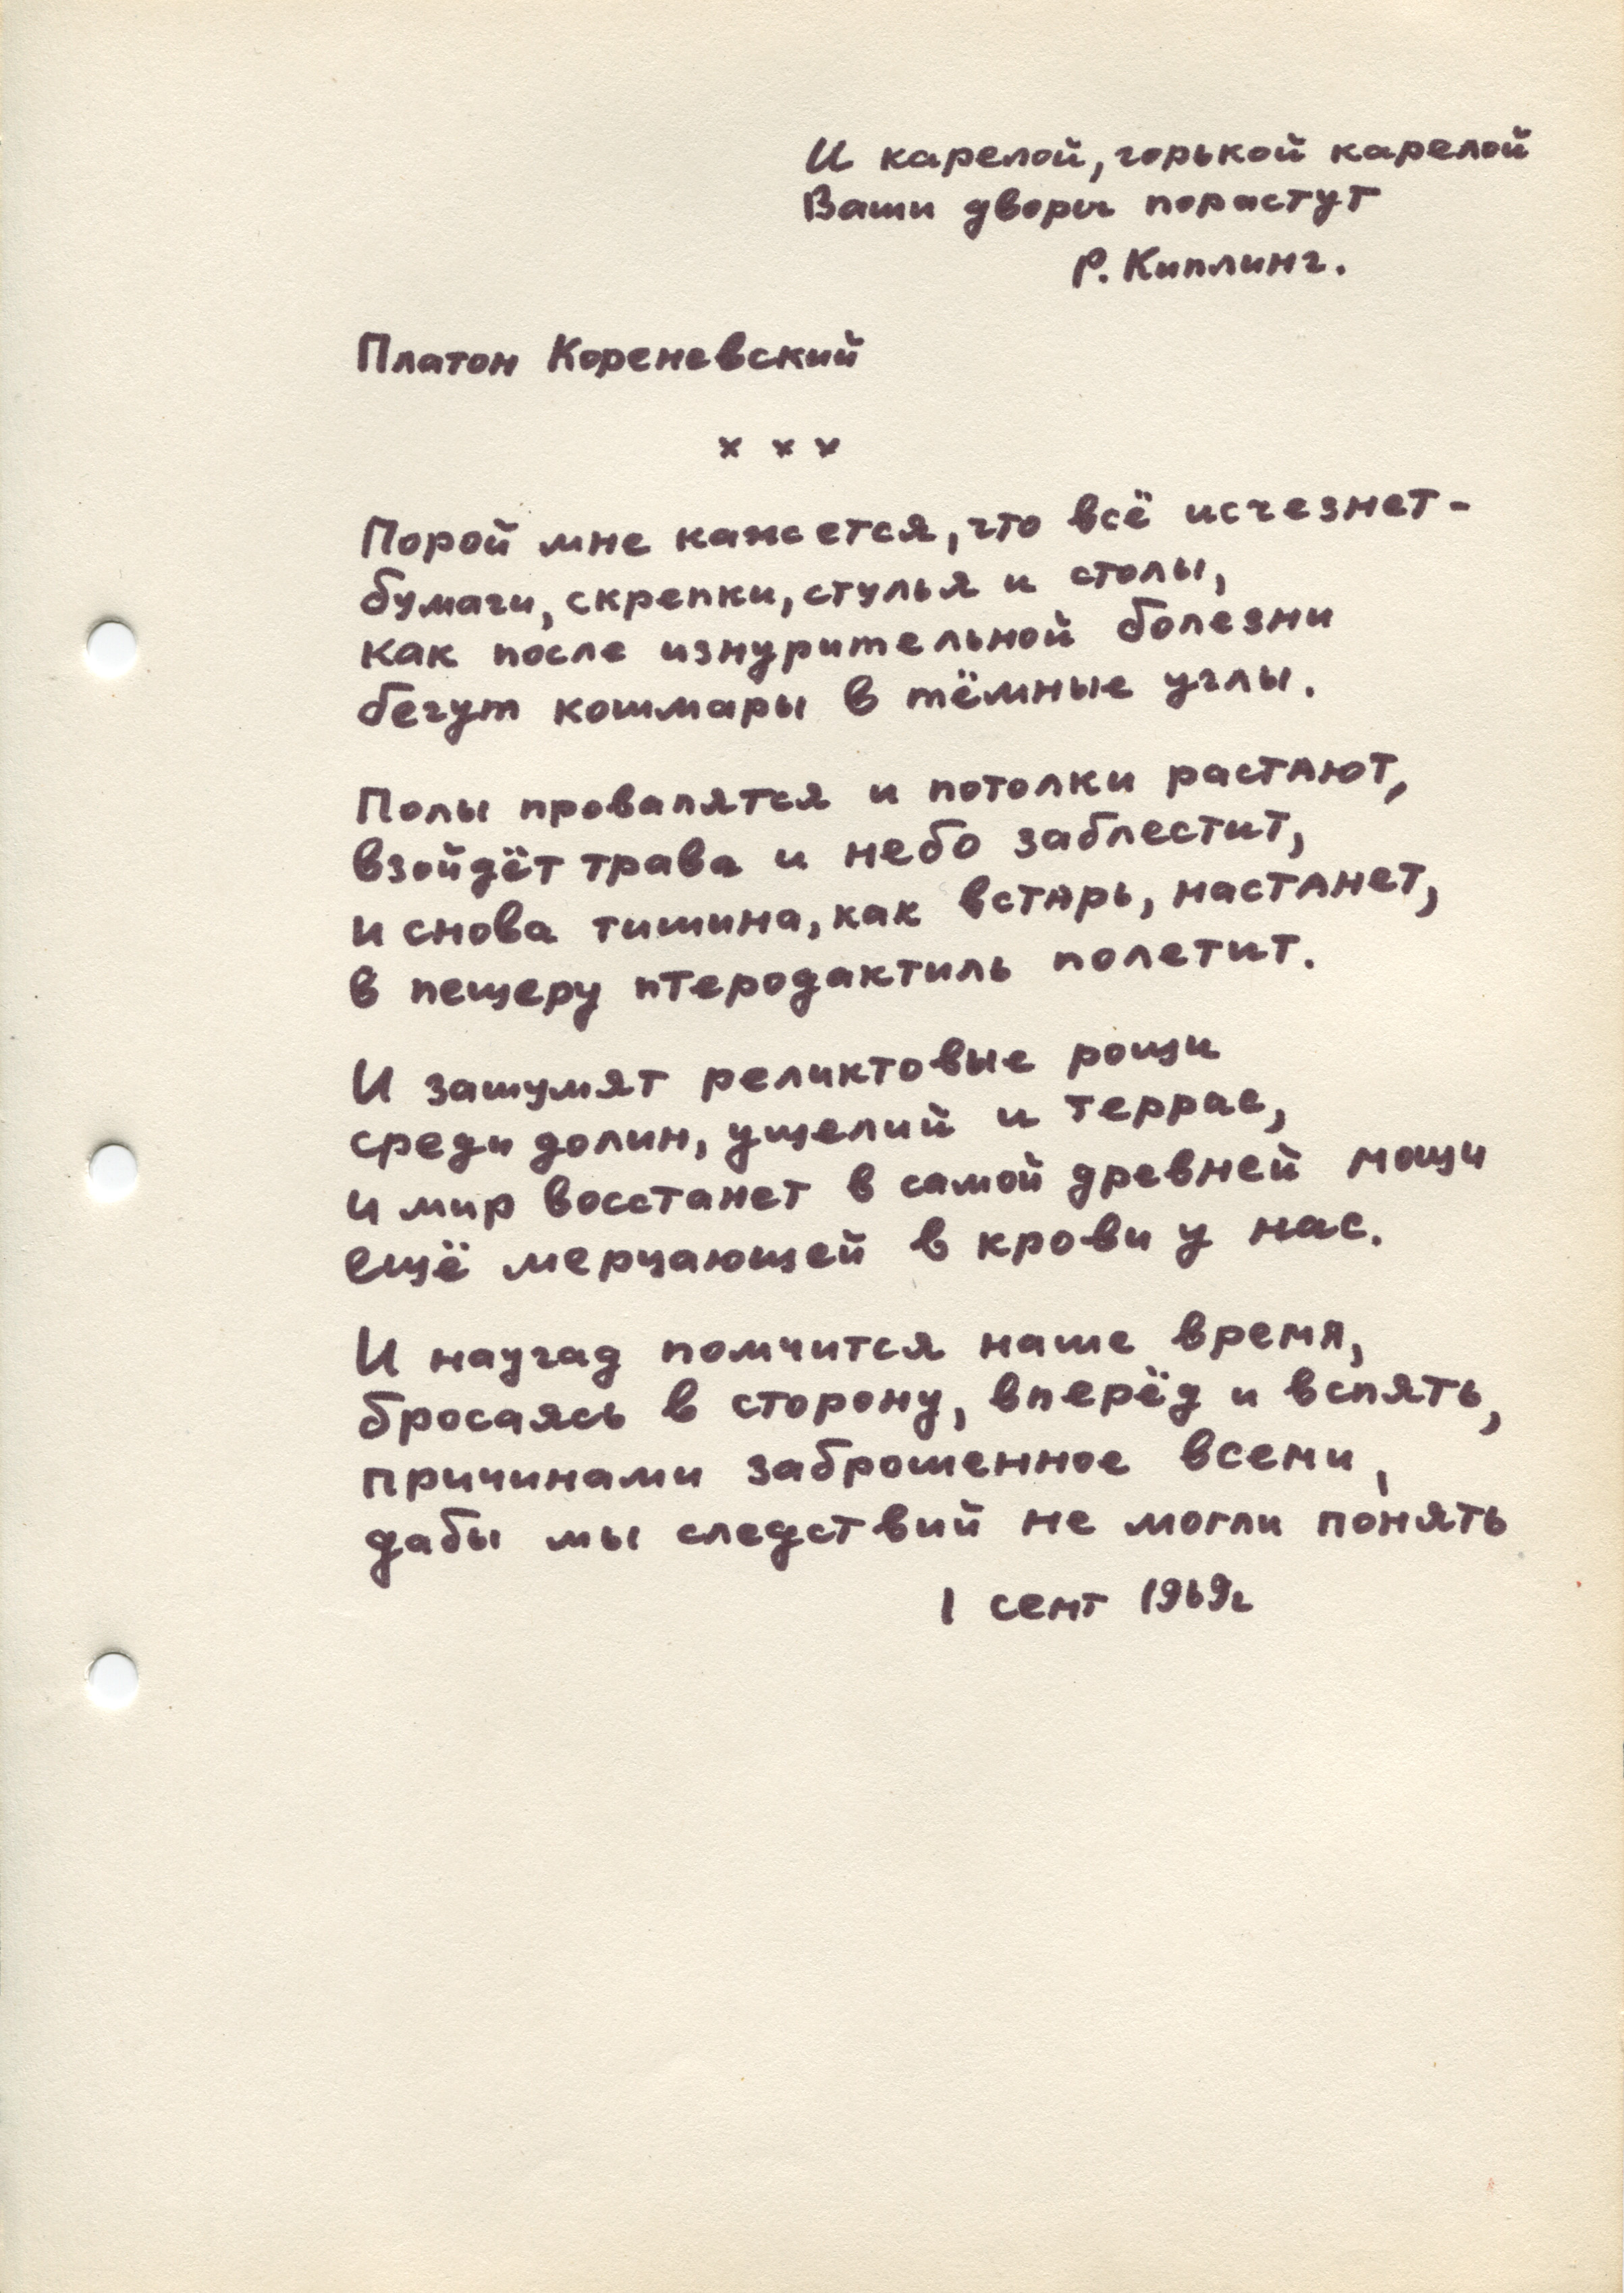 И карелой, горькой карелой
Ваши дворы порастут
Р. Киплинг.
Платон Кореневский
× × ×
Порой мне кажется, что всё исчезнет -
бумаги, скрепки, стулья и столы,
как после изнурительной болезни
бегут кошмары в тёмные углы.
Полы провалятся и потолки растают,
взойдёт трава и небо заблестит,
и снова тишина, как встарь, настанет,
в пещеру птеродактиль полетит.
И зашумят реликтовые рощи
среди долин, ущелий и террас,
и мир восстанет в самой древней мощи
ещё мерцающей в крови у нас.
И наугад помчится наше время,
бросаясь в сторону, вперёд и вспять,
причинами заброшенное всеми,
дабы мы следствий не могли понять
1 сент 1969г